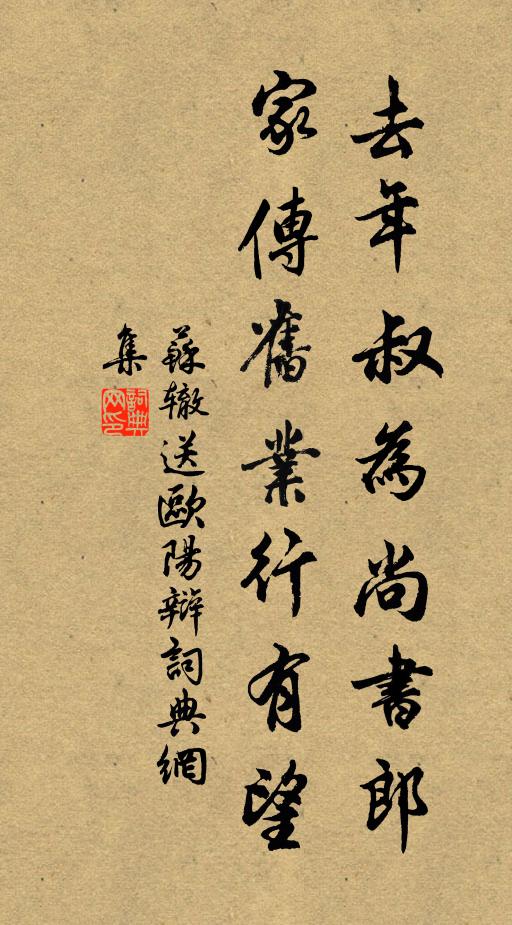 去年叔為尚書郎
家傳舊業行有望
蘇辙送歐陽辯詞典網
集
詞典网印